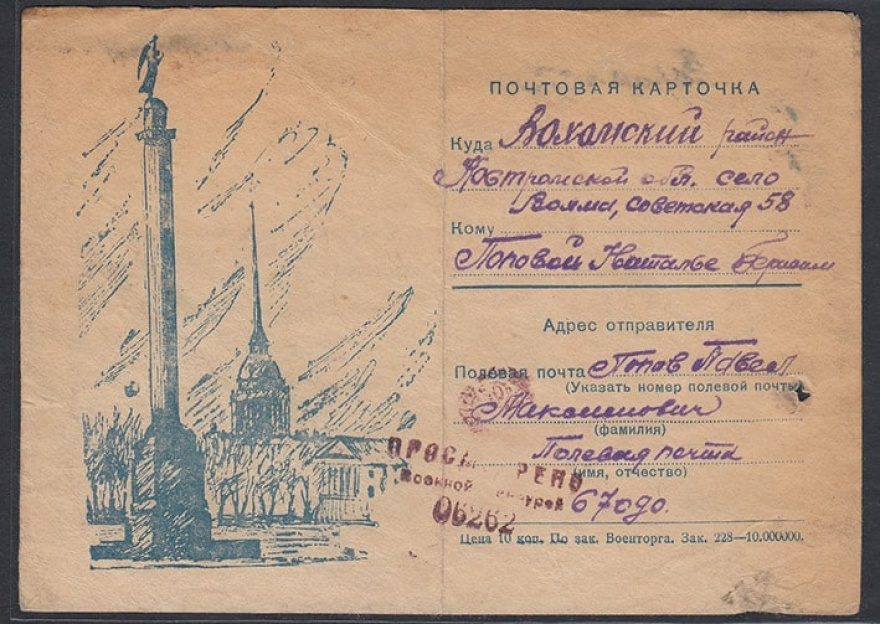 ПОЧТОВАЯ КАРТОЧКА
Куда Вохомский район
Костромской обл. село
Вохма, советская 58
Кому
Поповой Наталье
Адрес отправителя
Полевая почта Попов Павел
(Указать номер полевой почты)
Максимович
(фамилия)
Полевая почта
(имя, отчество)
ПРОС РЕНО
Военной
06262
Цена 10 коп. По зак. Военторга. Зак. 228—10.000000.